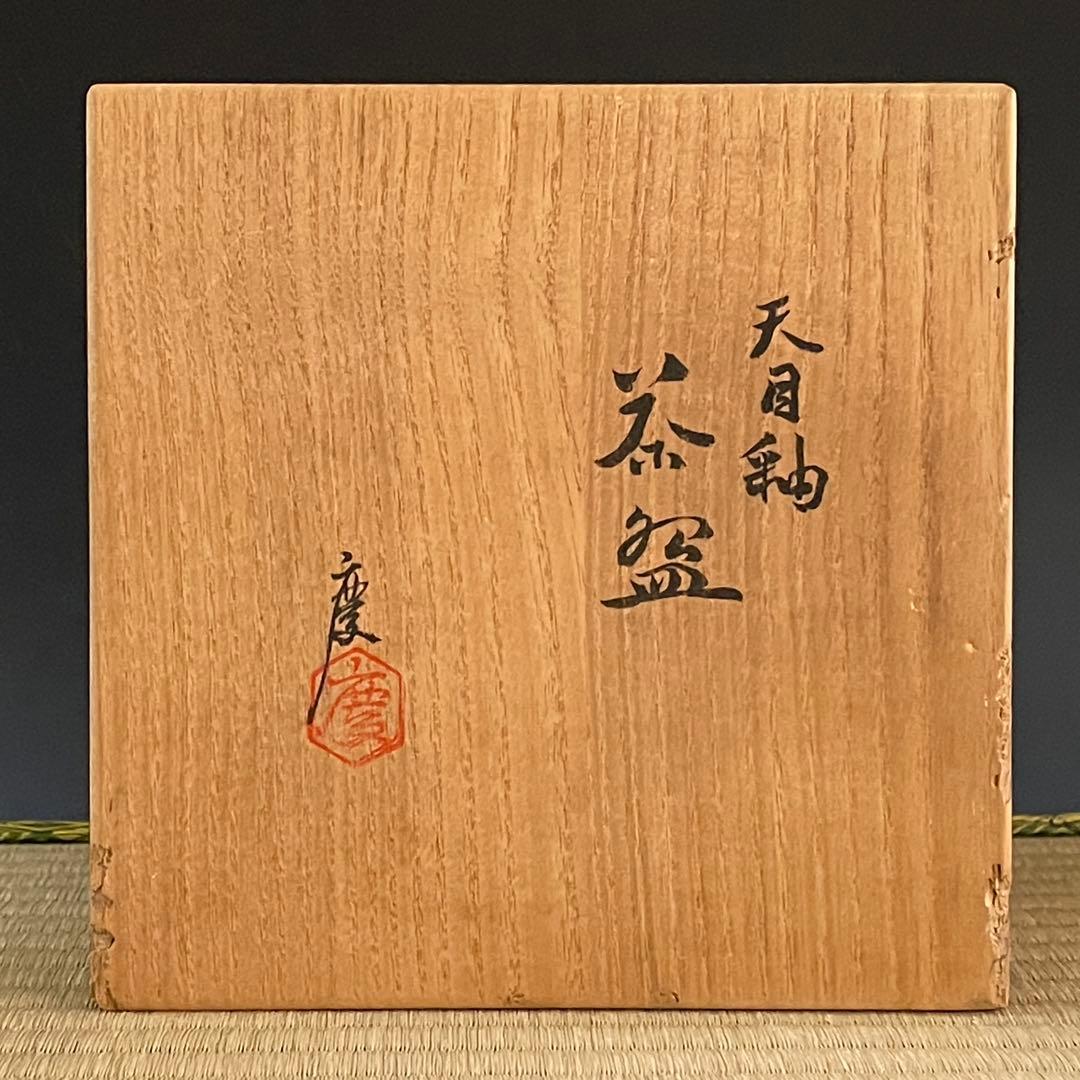 天目釉
茶盌
慶
慶